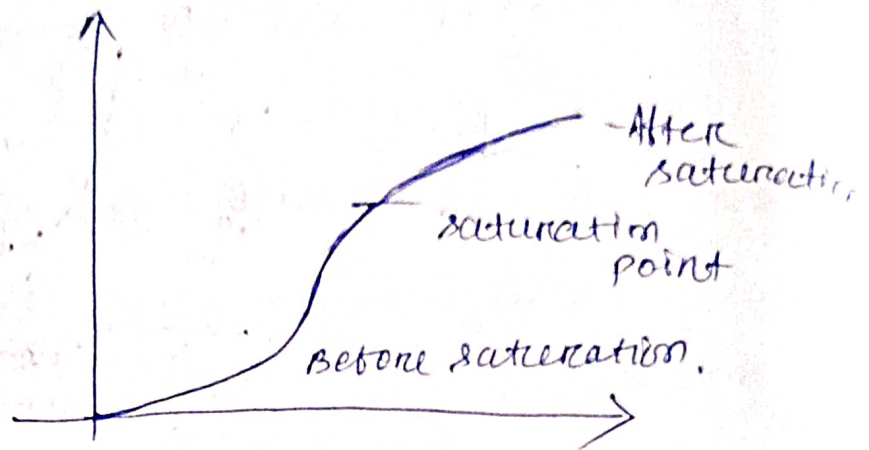 -After
saturation
saturation
point
Before saturation.